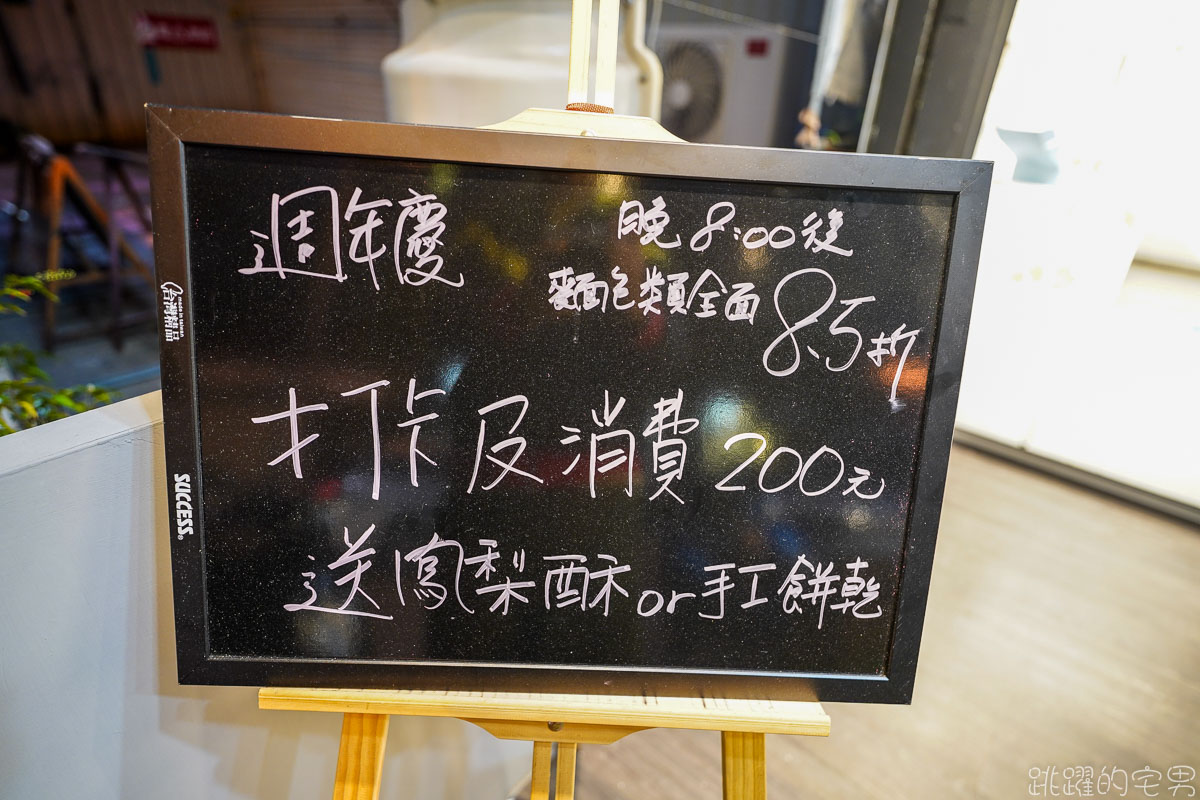 週年慶
晚8:00後
麵包類全面
8.5折
打卡及消費200元
送鳳梨酥or手工餅乾
MADE IN TAIWAN
台灣精品
SUCCESS®
跳躍的宅男